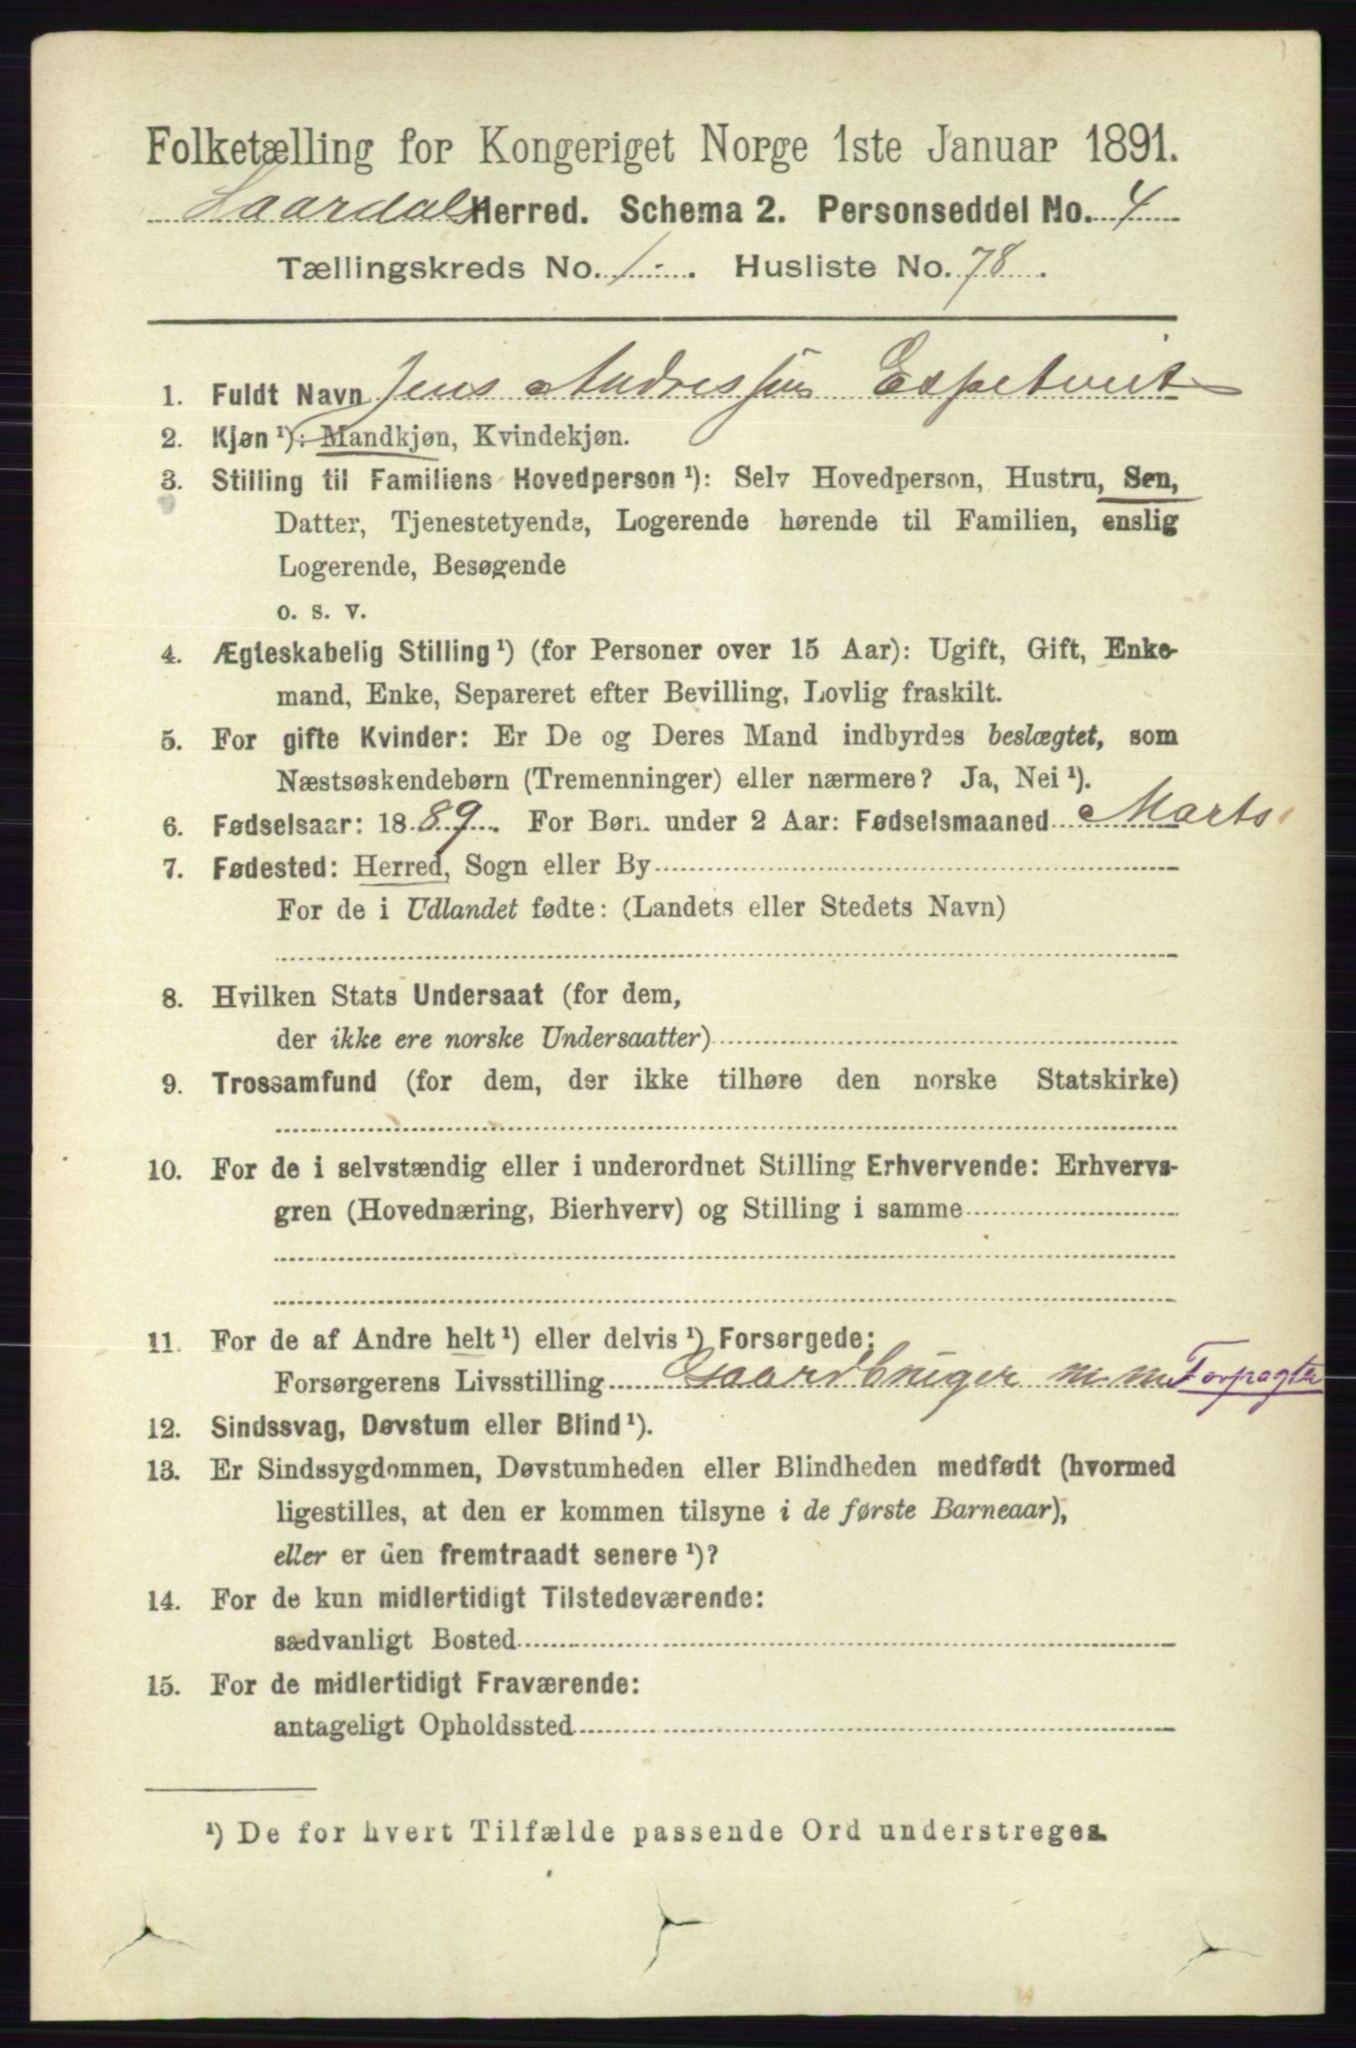 Folketælling for Kongeriget Norge 1ste Januar 1891.
Laardal Herred. Schema 2. Personseddel No. 4
Tællingskreds No. 1. Husliste No. 78.
1. Fuldt Navn Jens Andressen Espetveit
2. Kjøn ¹): Mandkjøn, Kvindekjøn.
3. Stilling til Familiens Hovedperson ¹): Selv Hovedperson, Hustru, Søn,
Datter, Tjenestetyende, Logerende hørende til Familien, enslig
Logerende, Besøgende
o. s. v.
4. Ægteskabelig Stilling ¹) (for Personer over 15 Aar): Ugift, Gift, Enke-
mand, Enke, Separeret efter Bevilling, Lovlig fraskilt.
5. For gifte Kvinder: Er De og Deres Mand indbyrdes beslægtet, som
Næstsøskendebørn (Tremenninger) eller nærmere? Ja, Nei ¹).
6. Fødselsaar: 1889. For Børn under 2 Aar: Fødselsmaaned Marts
7. Fødested: Herred, Sogn eller By
For de i Udlandet fødte: (Landets eller Stedets Navn)
8. Hvilken Stats Undersaat (for dem,
der ikke ere norske Undersaatter)
9. Trossamfund (for dem, der ikke tilhøre den norske Statskirke)
10. For de i selvstændig eller i underordnet Stilling Erhvervende: Erhvervs-
gren (Hovednæring, Bierhverv) og Stilling i samme
11. For de af Andre helt ¹) eller delvis ¹) Forsørgede:
Forsørgerens Livsstilling Gaardbruger m. m. Forpagter
12. Sindssvag, Døvstum eller Blind ¹).
13. Er Sindssygdommen, Døvstumheden eller Blindheden medfødt (hvormed
ligestilles, at den er kommen tilsyne i de første Barneaar),
eller er den fremtraadt senere ¹)?
14. For de kun midlertidigt Tilstedeværende:
sædvanligt Bosted
15. For de midlertidigt Fraværende:
antageligt Opholdssted
¹) De for hvert Tilfælde passende Ord understreges.